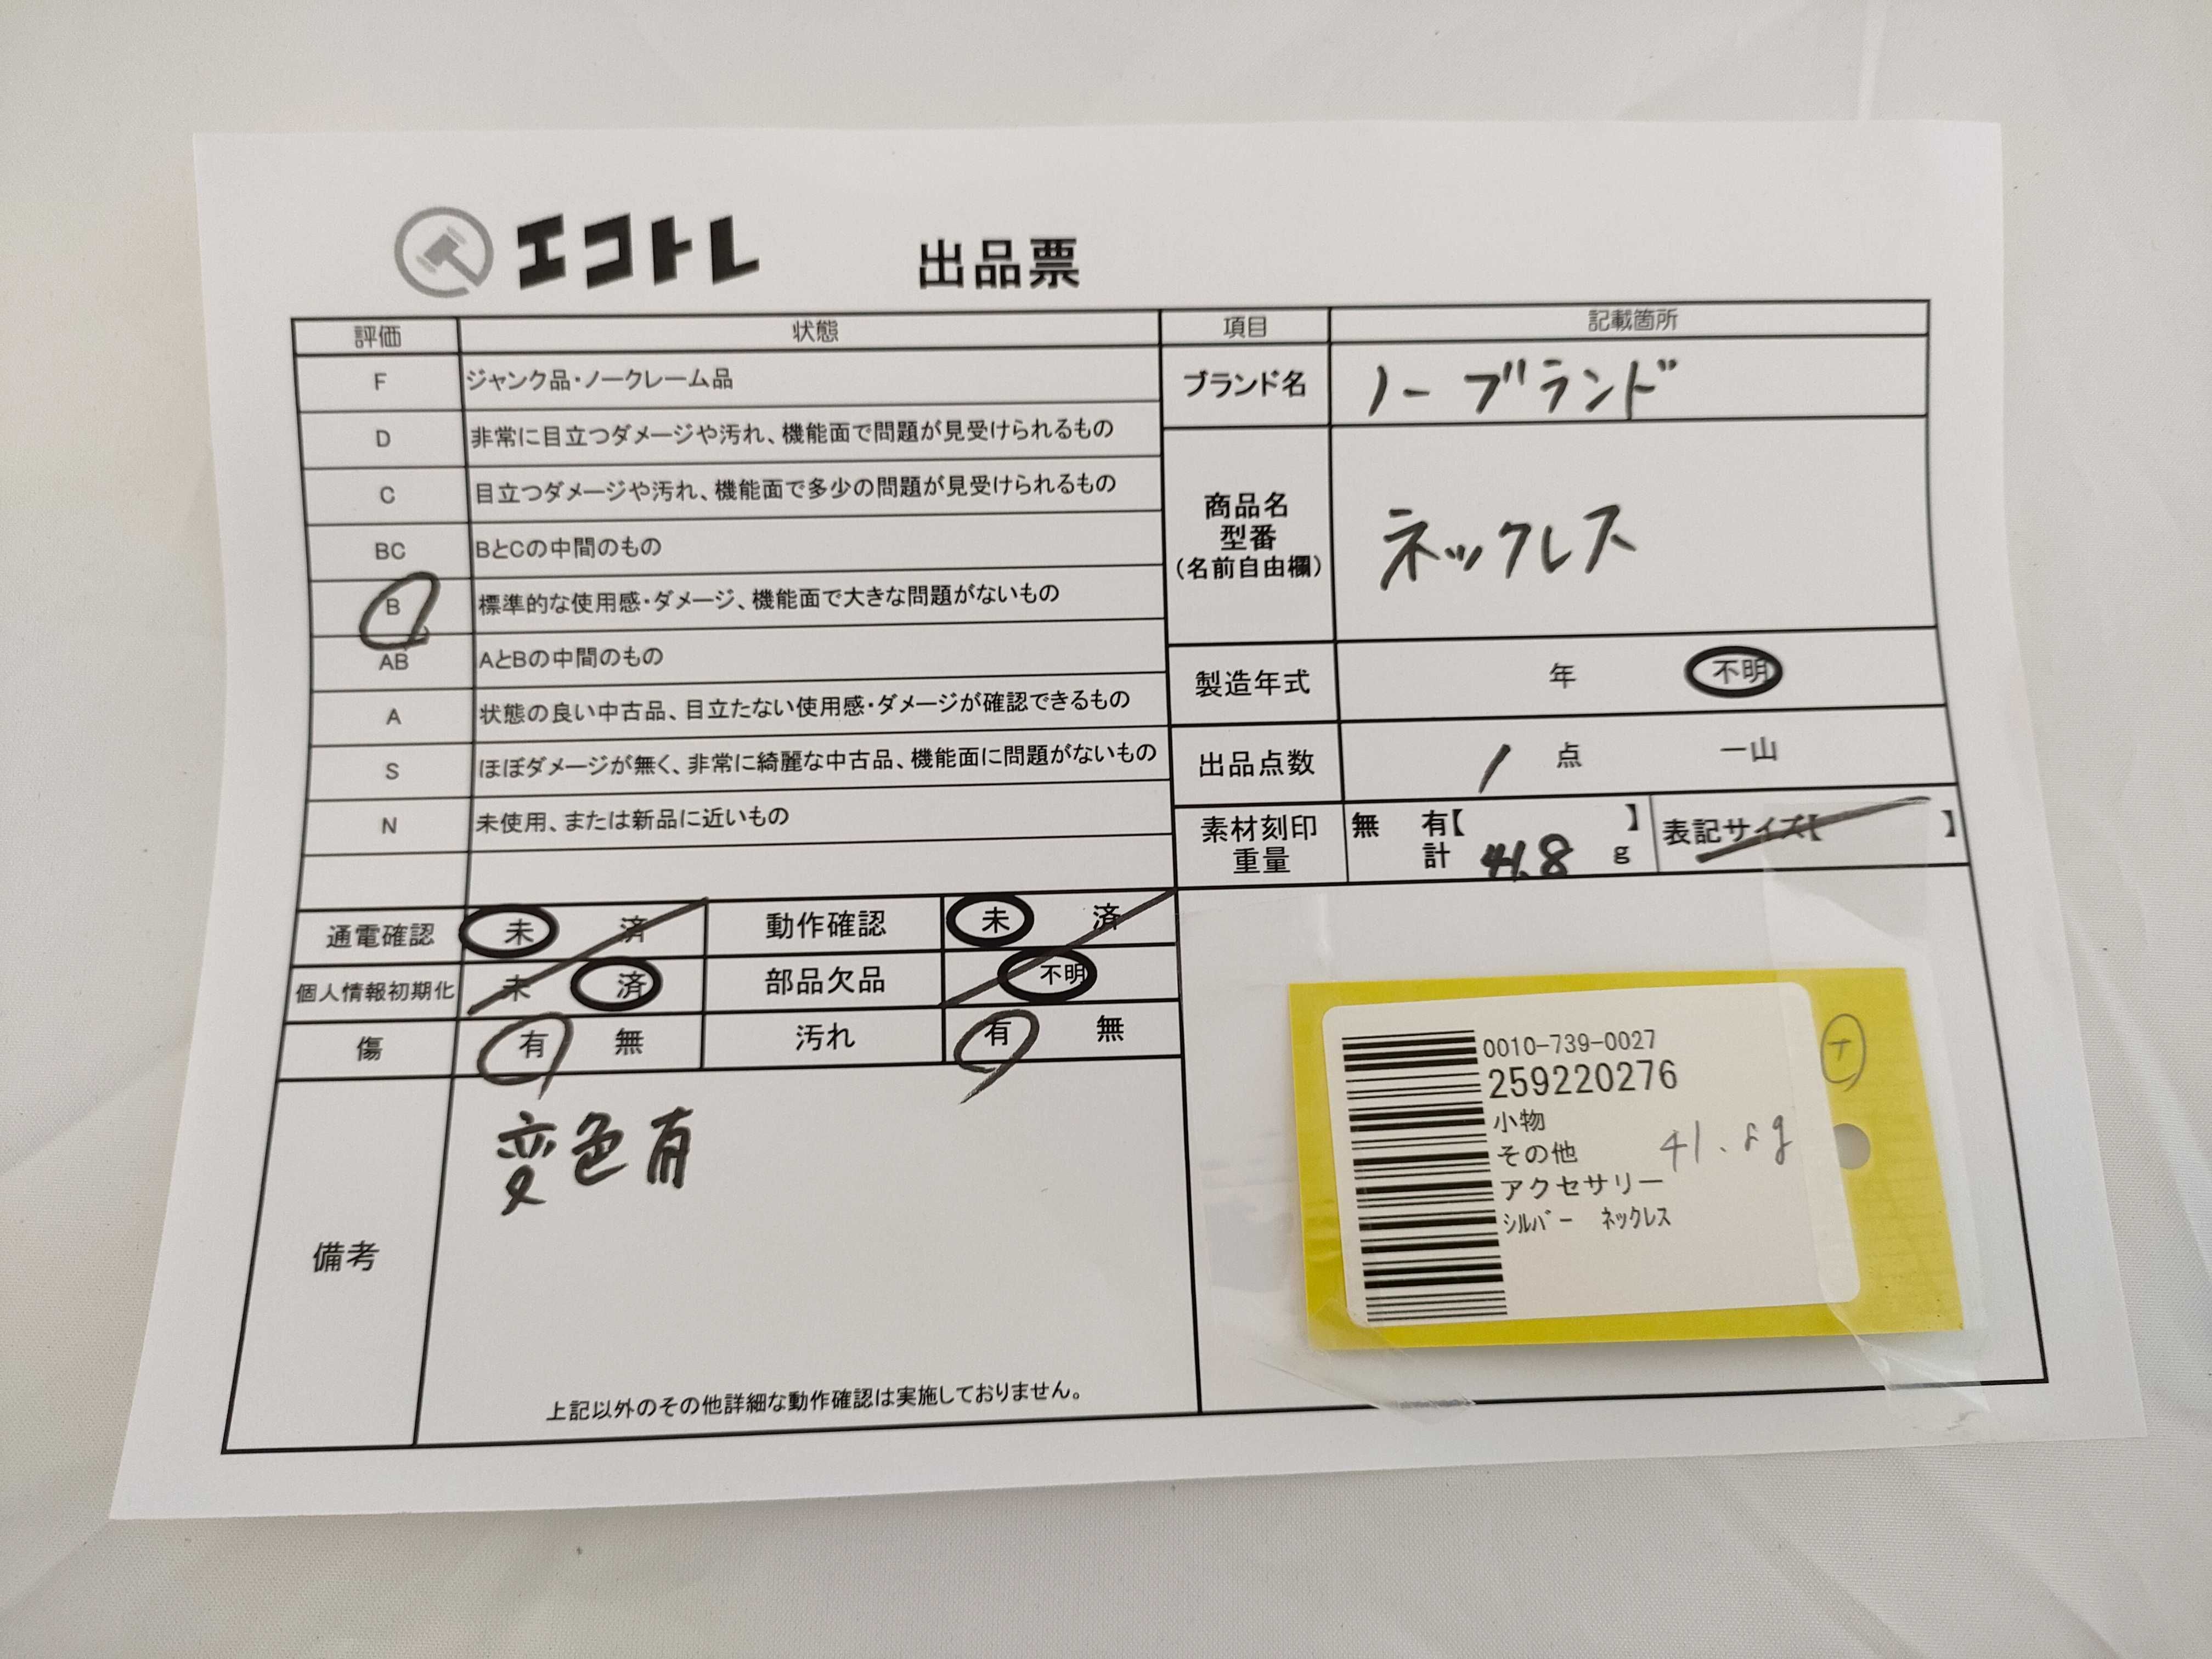 エコトレ 出品票
評価 状態 項目 記載箇所
F ジャンク品・ノークレーム品
D 非常に目立つダメージや汚れ、機能面で問題が見受けられるもの
C 目立つダメージや汚れ、機能面で多少の問題が見受けられるもの
BC BとCの中間のもの
B 標準的な使用感・ダメージ、機能面で大きな問題がないもの
AB AとBの中間のもの
A 状態の良い中古品、目立たない使用感・ダメージが確認できるもの
S ほぼダメージが無く、非常に綺麗な中古品、機能面に問題がないもの
N 未使用、または新品に近いもの
ブランド名 ノーブランド
商品名
型番
(名前自由欄)
ネックレス
製造年式 年 不明
出品点数 1 点 一山
素材刻印
重量
無 有【 】
計 41.8 g
表記サイズ【 】
通電確認 未 済 動作確認 未 済
個人情報初期化 未 済 部品欠品 不明
傷 有 無 汚れ 有 無
備考
変色有
上記以外のその他詳細な動作確認は実施しておりません。
0010-739-0027
259220276
小物
その他
アクセサリー
シルバー ネックレス
41.8g